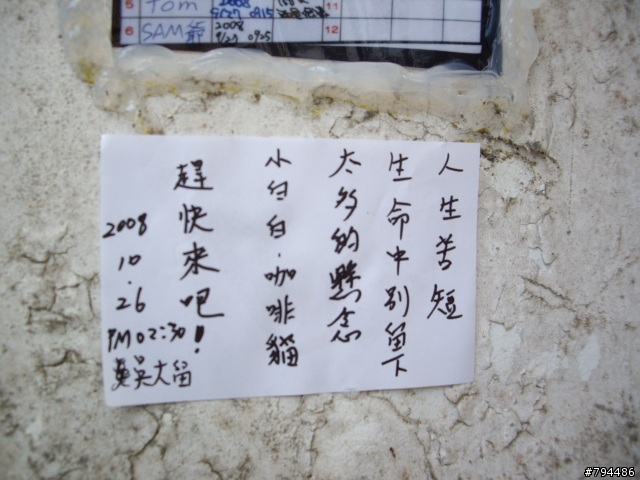 5 Tom 2008 9/27 0915 11
6 SAM爺 2008 9/27 0925 12
人生苦短
生命中別留下
太多的懸念
小白白.咖啡貓
趕快來吧!
2008
10
.26
PM 02:30
大留
#794486